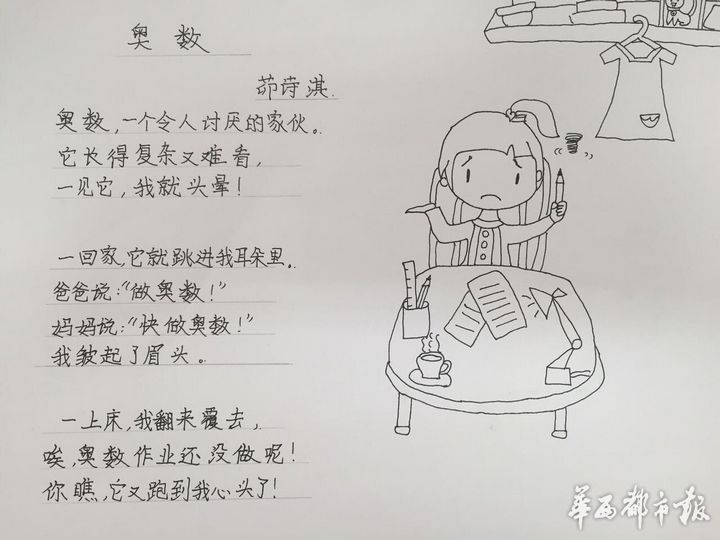 奥数
茆诗淇.
奥数,一个令人讨厌的家伙。
它长得复杂又难看,
一见它,我就头晕!
一回家,它就跳进我耳朵里。
爸爸说:“做奥数!”
妈妈说:“快做奥数!”
我皱起了眉头。
一上床,我翻来覆去,
唉,奥数作业还没做呢!
你瞧,它又跑到我心头了!
华西都市报